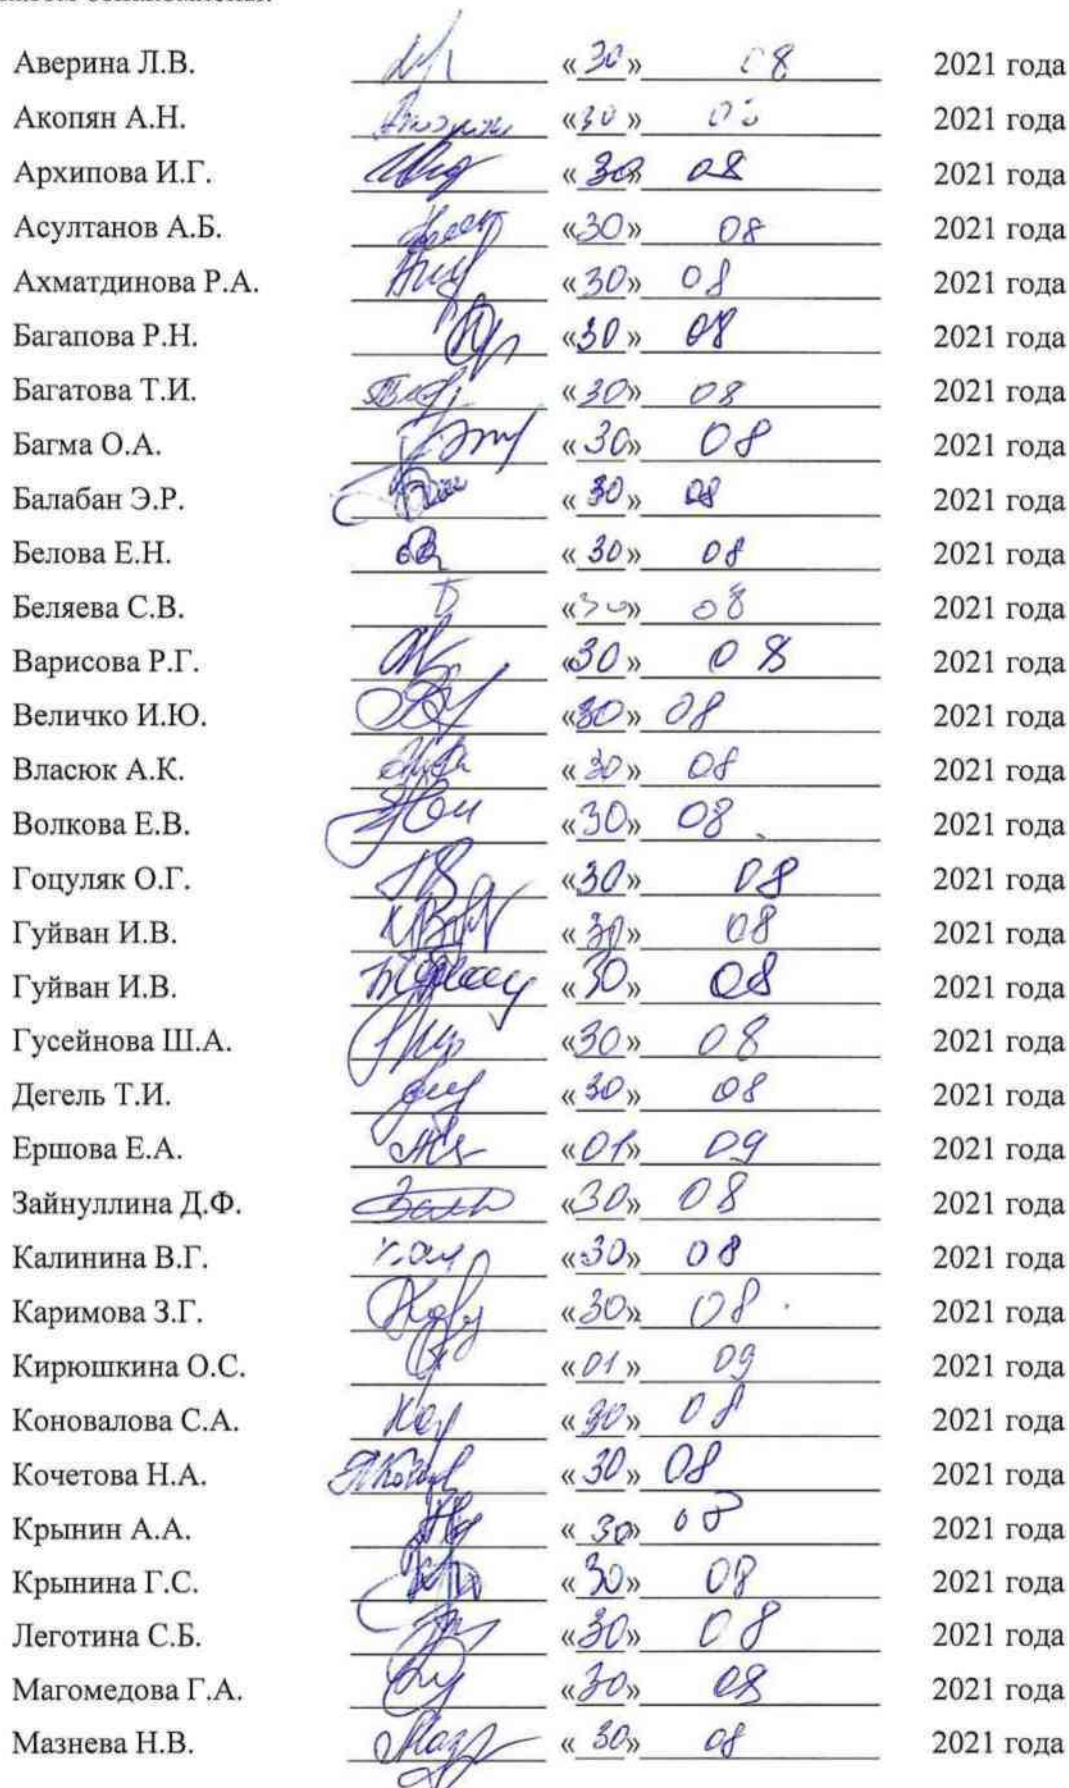 Аверина Л.В. «30» 08 2021 года
Акопян А.Н. «30» 08 2021 года
Архипова И.Г. «30» 08 2021 года
Асултанов А.Б. «30» 08 2021 года
Ахматдинова Р.А. «30» 08 2021 года
Багапова Р.Н. «30» 08 2021 года
Багатова Т.И. «30» 08 2021 года
Багма О.А. «30» 08 2021 года
Балабан Э.Р. «30» 08 2021 года
Белова Е.Н. «30» 08 2021 года
Беляева С.В. «30» 08 2021 года
Варисова Р.Г. «30» 08 2021 года
Величко И.Ю. «30» 08 2021 года
Власюк А.К. «30» 08 2021 года
Волкова Е.В. «30» 08 2021 года
Гоцуляк О.Г. «30» 08 2021 года
Гуйван И.В. «30» 08 2021 года
Гуйван И.В. «30» 08 2021 года
Гусейнова Ш.А. «30» 08 2021 года
Дегель Т.И. «30» 08 2021 года
Ершова Е.А. «01» 09 2021 года
Зайнуллина Д.Ф. «30» 08 2021 года
Калинина В.Г. «30» 08 2021 года
Каримова З.Г. «30» 08 2021 года
Кирюшкина О.С. «01» 09 2021 года
Коновалова С.А. «30» 08 2021 года
Кочетова Н.А. «30» 08 2021 года
Крынин А.А. «30» 08 2021 года
Крынина Г.С. «30» 08 2021 года
Леготина С.Б. «30» 08 2021 года
Магомедова Г.А. «30» 08 2021 года
Мазнева Н.В. «30» 08 2021 года